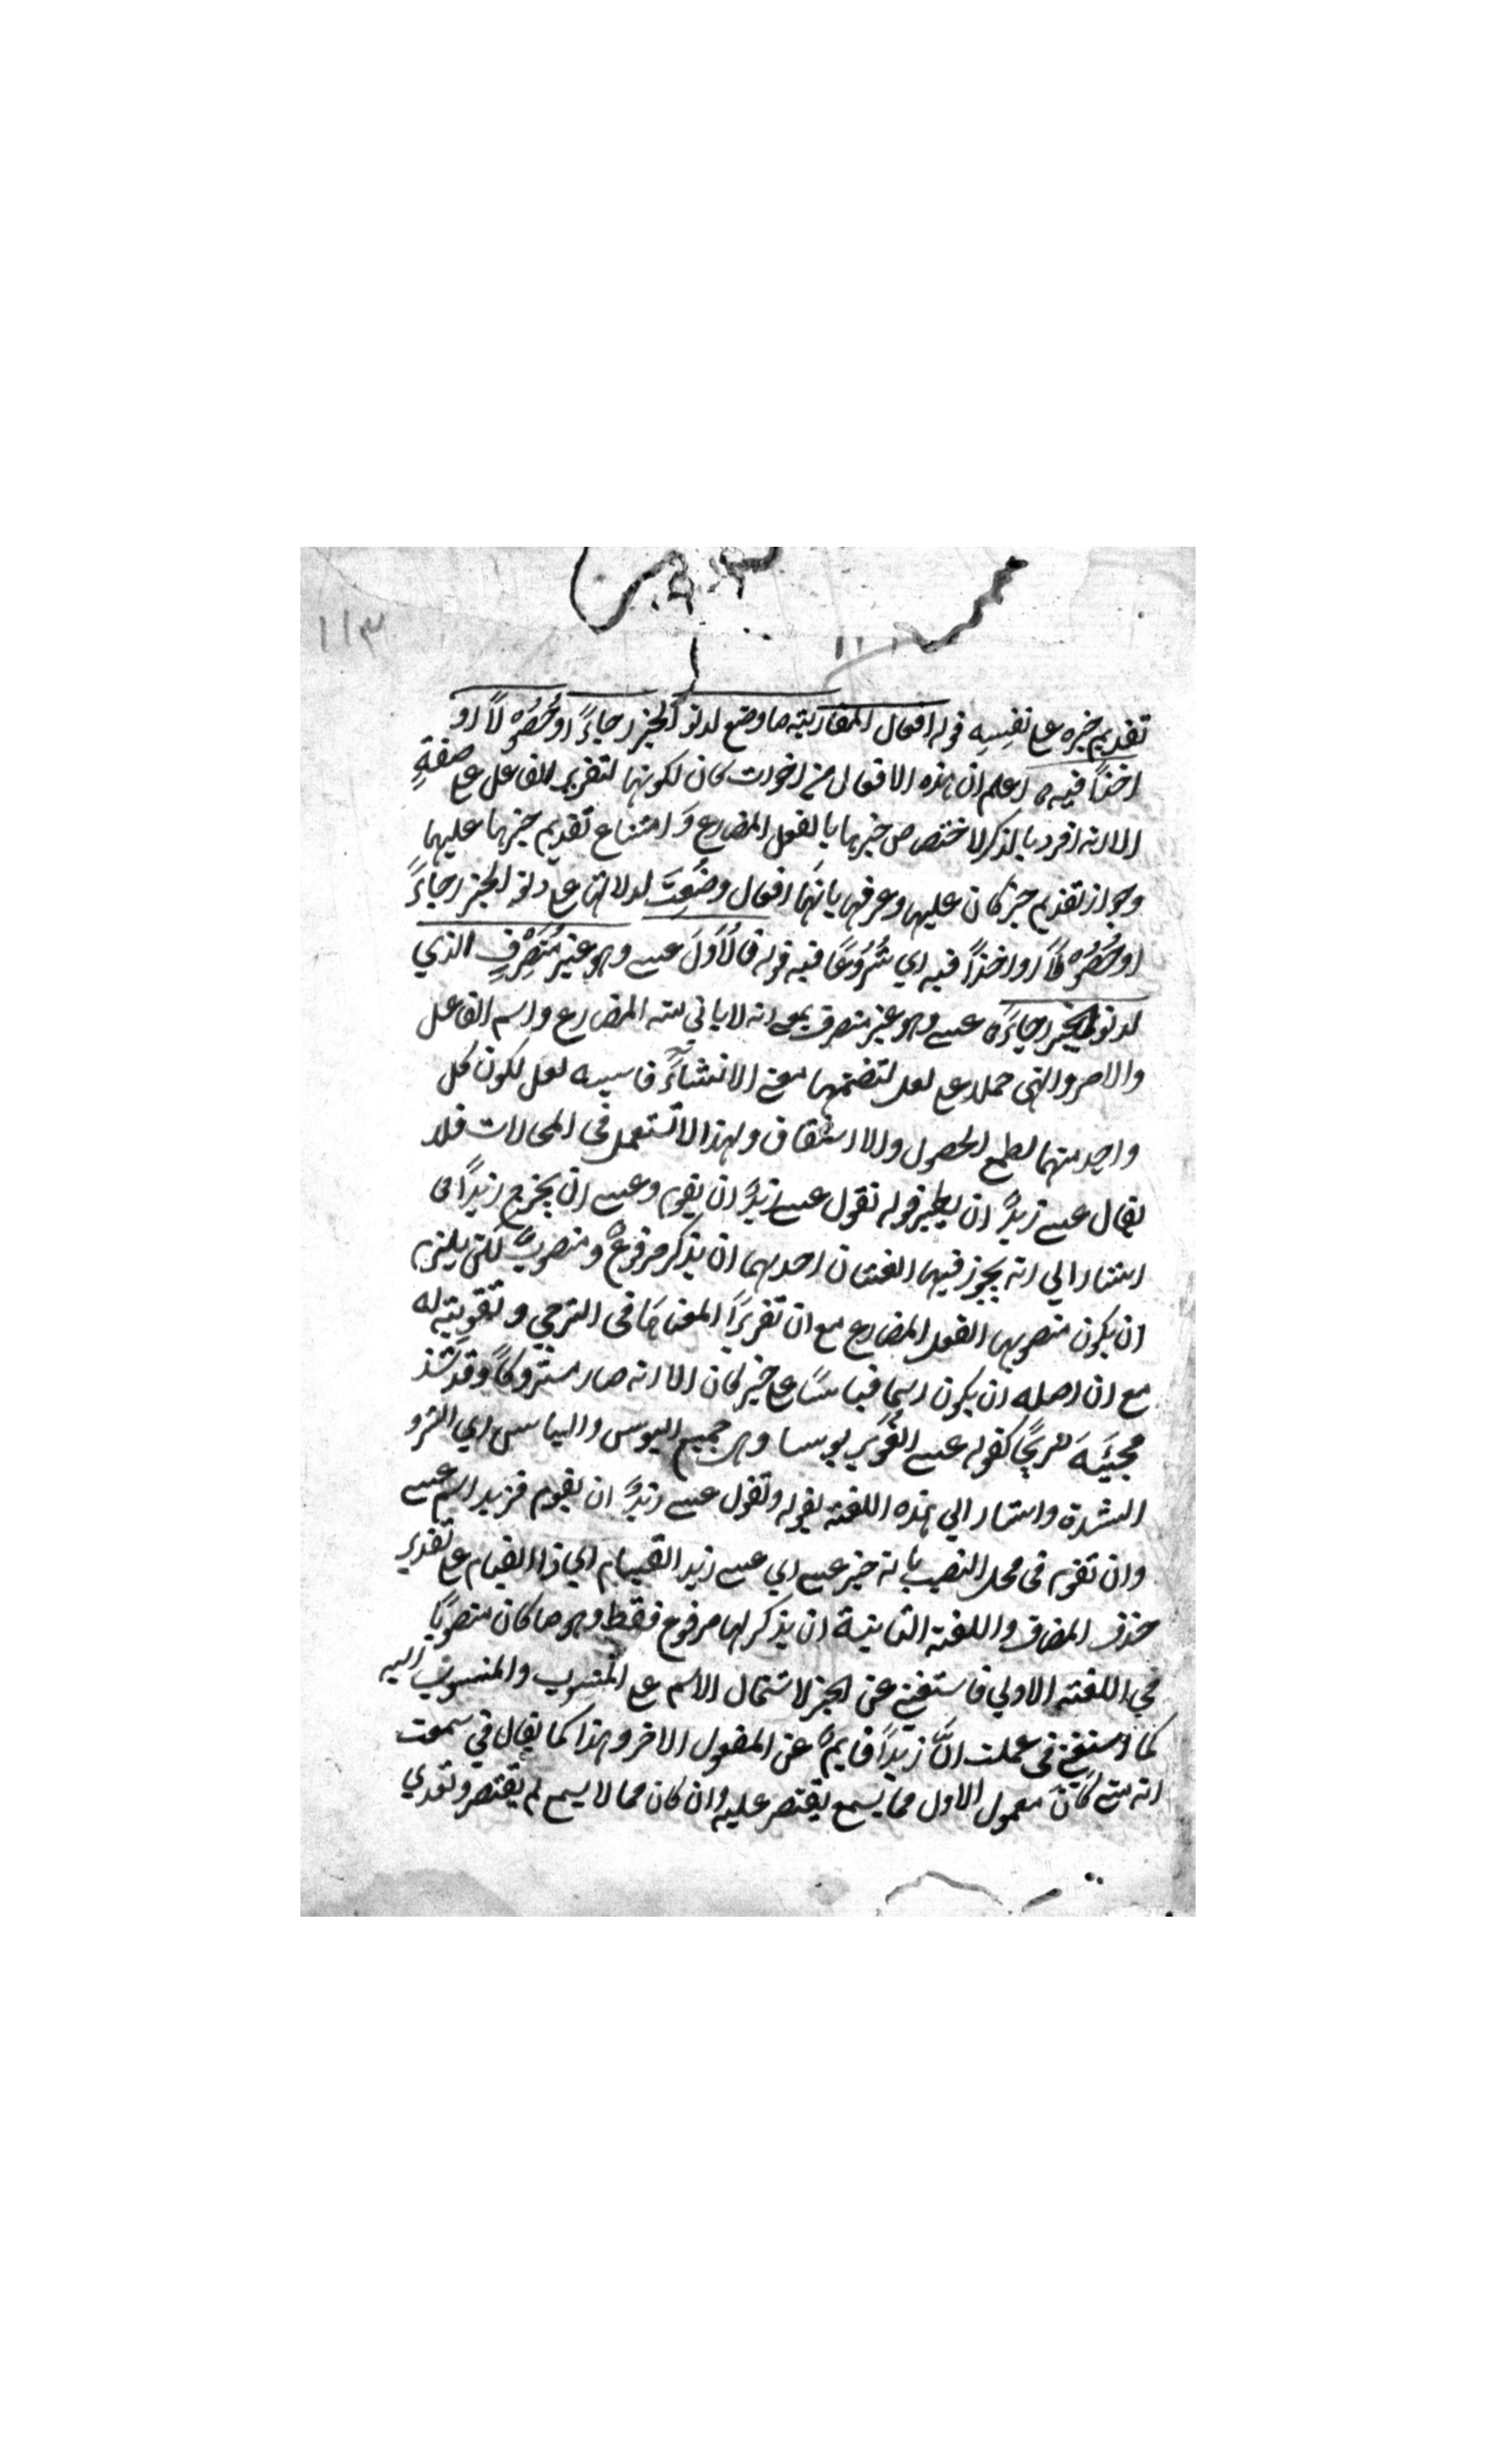 ١١٣
تقديم خبره على نفسه قوله افعال المقاربة ما وضع لدنو الخبر رجاءً او حصولاً او
اخذاً فيه اعلم ان هذه الافعال من اخوات كان لكونها لتقرير الفاعل على صفةٍ
الا انه افرد بالذكر لاختصاص خبرها بالفعل المضارع وَامتناع تقديم خبرها عليها
وجواز تقديم خبر كان عليها وعرفها بانّها افعال وضعت لدلالتها على دنو الخبر رجاءً
او حصولاً او اخذاً فيه اي شُرُوعًا فيه قوله فالأوّلَ عسى وهو غير مُتصَرّفٍ الذي
لدنو الخبر رجاءً عسى وهو غير متصرف بمعنى انه لا ياتي منه المضارع واسم الفاعل
والامر والنهي حملا على لعل لتضمنها معنى الانشاءً لعل لكون كل
واحد منهما لطمع الحصول والا استحقاق ولهذا لا تستعمل في المحالات فلا
يقال عسى زيدٌ ان يطير قوله تقول عسى زيدٌ ان يقوم وعسى ان يخرج زيدٌ
اشار الي انه يجوز فيها لغتان احدهما ان يذكر مرفوعٌ ومنصوبٌ لكن يلزم
ان يكون منصوبها الفعل المضارع مع ان تقريرًا لمعناها في الترجي وتقويته له
مع ان اصله ان يكون اسما قياسًا على خبر كان الا انه صار متروكًا وقد شذ
مجيئه صريحًا كقوله عسى الغُوَير ابوسا وهو جميع البوس والباس اي الشر و
الشدة واشار الي هذه اللغة بقوله وتقول عسى زيدٌ ان يقوم فزيد اسم عسى
وان تقوم في محل النصب بانه خبر عسى اي عسى زيد القيام اي ذا القيام على تقدير
حذف المضاف واللغة الثانية ان يذكر لها مرفوع فقط وهو ما كان منصوبًا
في اللغة الاولي فاستغني عن الخبر لاشتمال الاسم على المنسوب والمنسوب اليه
كما استغني في علمت انّ زيدًا قايمٌ عن المفعول الاخر وهذا كما يقال في سمعت
انه متى كان معمول الاول مما يسمع يقتصر عليه وان كان مما لا يسمع لم يقتصر وتعدي